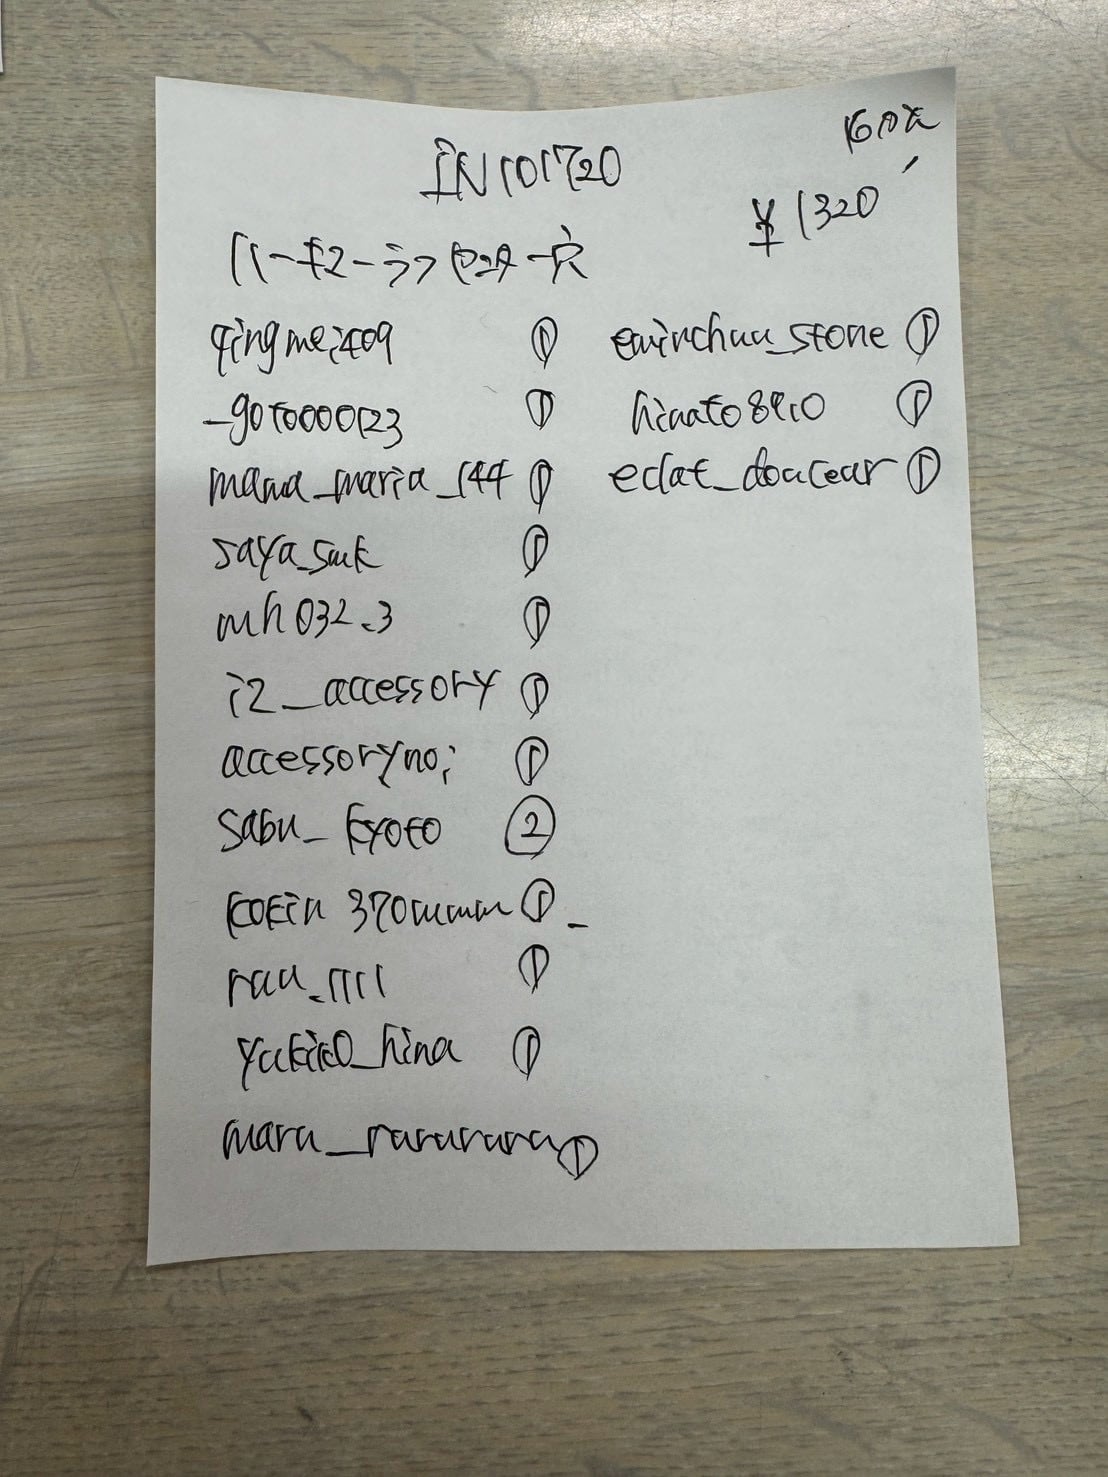 IN101720
16点
¥1320
qingmei409 ①
_goto000123 ①
mana_maria_144 ①
saya_smk ①
mh032.3 ①
i2_accessory ①
accessorynoi ①
sabu_kyoto ②
kokin370mmm ①_
rau_1111 ①
yukiko_hina ①
maru_raruraru ①
emirchuu_stone ①
hinato8910 ①
eclat_douceur ①